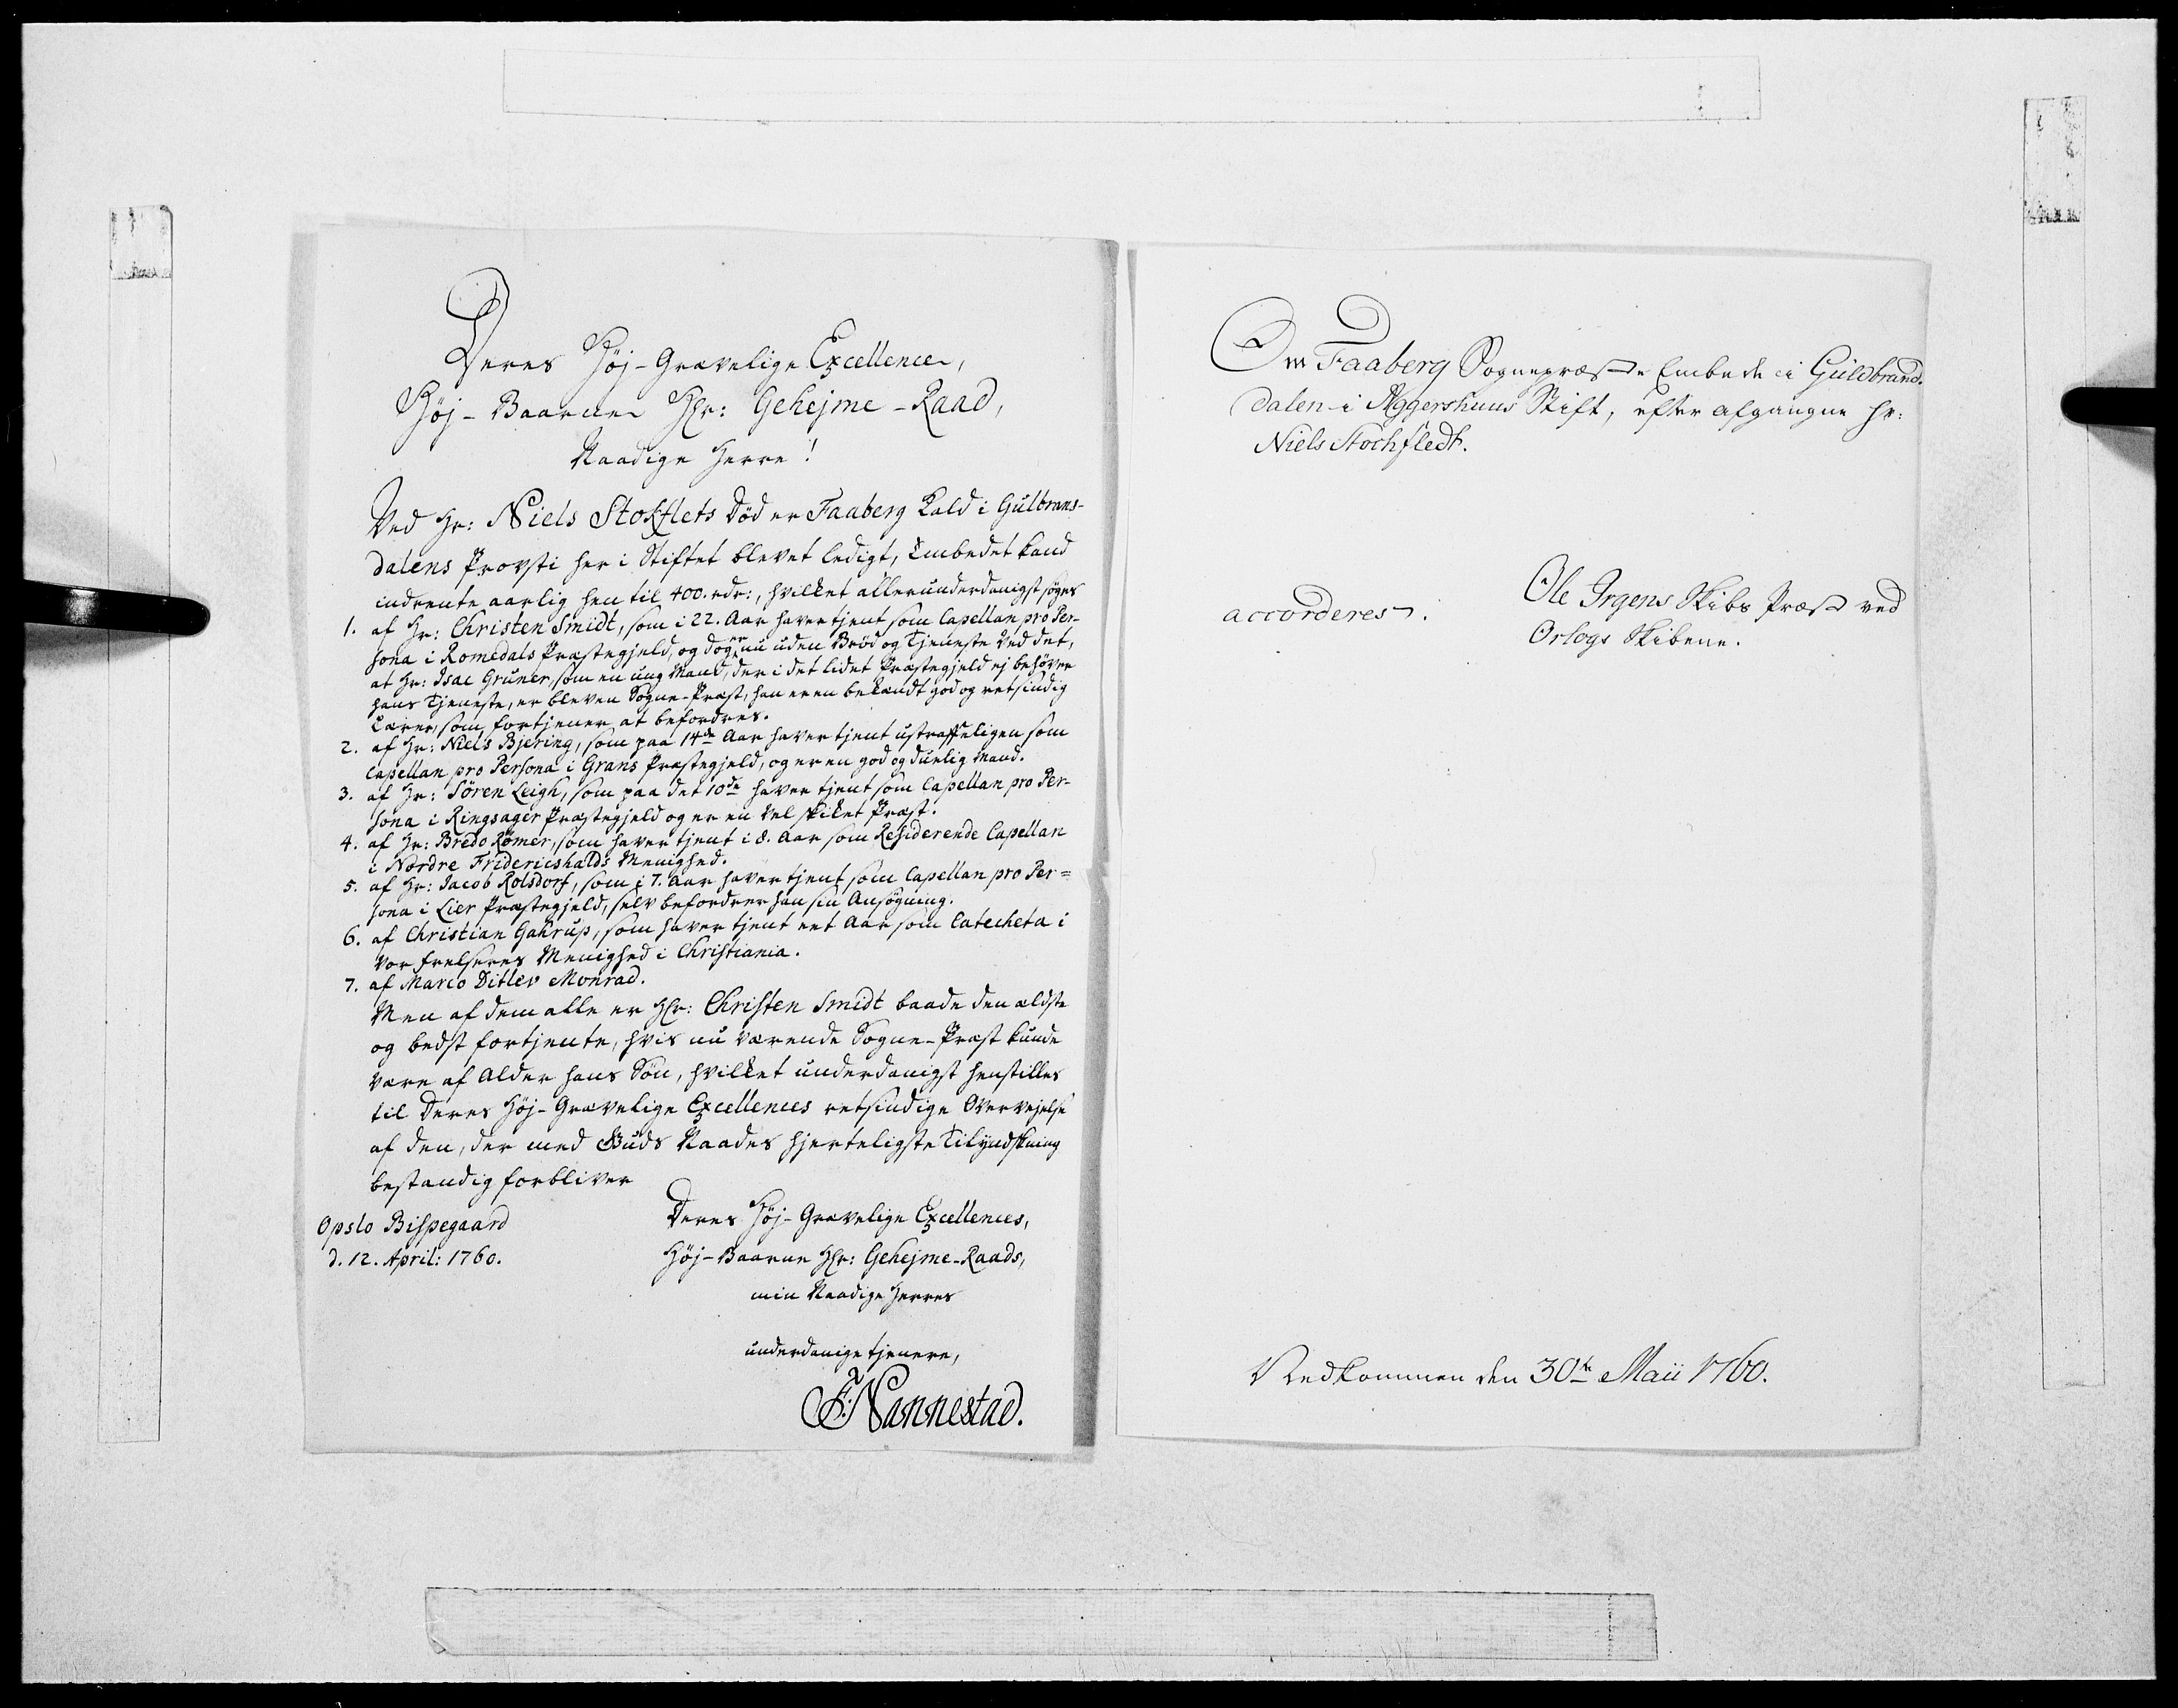 Deres Høj-Grævelige Excellence,
Høj-Baarne Hr: Gehejme-Raad,
Naadige Herre!
Ved Hr: Niels Stokflets Død er Faaberg Kald i Gulbrans-
dalens Provsti her i Stiftet blevet ledigt, Embedet kand
indrente aarlig hen til 400. rdr:, hvilket allerunderdanigst søges
1. af Hr: Christen Smidt, som i 22. Aar haver tjent som Capellan pro Per-
sona i Romedals Præstegjeld, og dog er nu uden Brød og Tjeneste ved det,
at Hr: Isac Gruner, som en ung Mand, der i det lidet Præstegjeld ej behøver
hans Tjeneste, er bleven Sogne-Præst, han er en bekandt god og retsindig
Lærer, som fortjener at befordres.
2. af Hr: Niels Bjering, som paa 14de Aar haver tjent ustraffeligen som
Capellan pro Persona i Grans Præstegjeld, og er en god og duelig Mand.
3. af Hr: Søren Leigh, som paa det 10de haver tjent som Capellan pro Per-
sona i Ringsager Præstegjeld og er en vel skiket Præst.
4. af Hr: Bredo Rømer, som haver tjent i 8. Aar som Residerende Capellan
i Nordre Fridericshalds Menighed.
5. af Hr: Jacob Rolsdorf, som i 7. Aar haver tjent som Capellan pro Per=
sona i Lier Præstegjeld, selv befordrer han sin Ansøgning.
6. af Christian Gahrup, som haver tjent eet Aar som Catecheta i
Vor Frelseres Menighed i Christiania.
7. af Marco Ditlev Monrad.
Men af dem alle er Hr: Christen Smidt baade den ældste
og bedst fortjente, hvis nu værende Sogne-Præst kunde
være af Alder hans Søn, hvilket underdanigst henstilles
til Deres Høj-Grævelige Excellences retsindige Overvejelse
af den, der med Guds Naades hjerteligste Tilyndskning
bestandig forbliver
Deres Høj-Grævelige Excellences,
Høj-Baarne Hr: Gehejme-Raads,
min Naadige Herres
underdanige tjenere,
F. Nannestad.
Opslo Bispegaard
d. 12. April: 1760.
Om Faaberg Sognepræste Embede i Guldbrand-
dalen i Aggershuus Stift, efter afgangne Hr:
Niels Stochfledt.
accorderes.
Ole Irgens Skibs Præst ved
Orlogs Skibene.
Nedkommen den 30te Maii 1760.